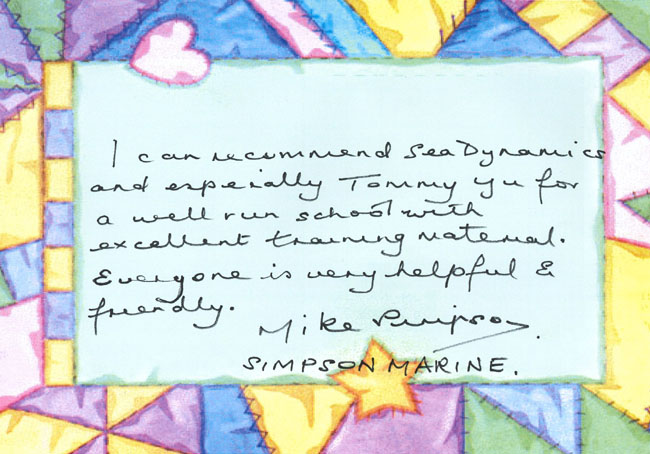 I can recommend Sea Dynamics
and especially Tommy Yu for
a well run school with
excellent training material.
Everyone is very helpful &
friendly.
Mike Simpson.
SIMPSON MARINE.